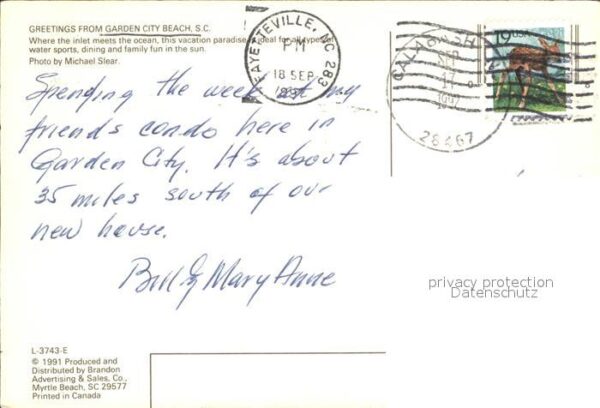 GREETINGS FROM GARDEN CITY BEACH, S.C.
Where the inlet meets the ocean, this vacation paradise is ideal for all types of
water sports, dining and family fun in the sun.
Photo by Michael Slear.
FAYETTEVILLE, NC 283
PM
18 SEP
CALABASH
17
28467
19 USA
Spending the week at my
friends condo here in
Garden City. It's about
35 miles south of our
new house.
Bill & Mary Anne
privacy protection
Datenschutz
L-3743-E
© 1991 Produced and
Distributed by Brandon
Advertising & Sales, Co.,
Myrtle Beach, SC 29577
Printed in Canada